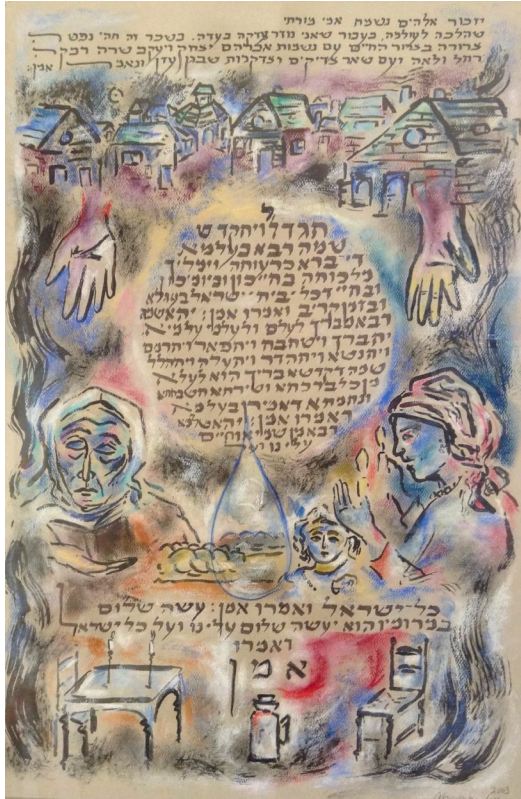 יזכור אלהים נשמת אמי מורתי
שהלכה לעולמה, בעבור שאני נודר צדקה בעדה. בשכר זה תהי נפשה
צרורה בצרור החיים עם נשמות אברהם יצחק ויעקב שרה רבקה
רחל ולאה ועם שאר צדיקים וצדקניות שבגן עדן ונאמר אמן:
יתגדל ויתקדש
שמה רבא בעלמא
די ברא כרעותה וימליך
מלכותה בחייכון וביומיכון
ובחיי דכל בית ישראל בעגלא
ובזמן קריב ואמרו אמן: יהא שמה
רבא מברך לעלם ולעלמי עלמיא
יתברך וישתבח ויתפאר ויתרמם
ויתנשא ויתהדר ויתעלה ויתהלל
שמה דקדשא בריך הוא לעלא
מן כל ברכתא ושירתא תשבחתא
ונחמתא דאמירן בעלמא
ואמרו אמן: יהא שלמא
רבא מן שמיא וחיים
עלינו ועל
כל־ישראל ואמרו אמן: עשה שלום
במרומיו הוא יעשה שלום עלינו ועל כל ישראל
ואמרו
אמן
2003